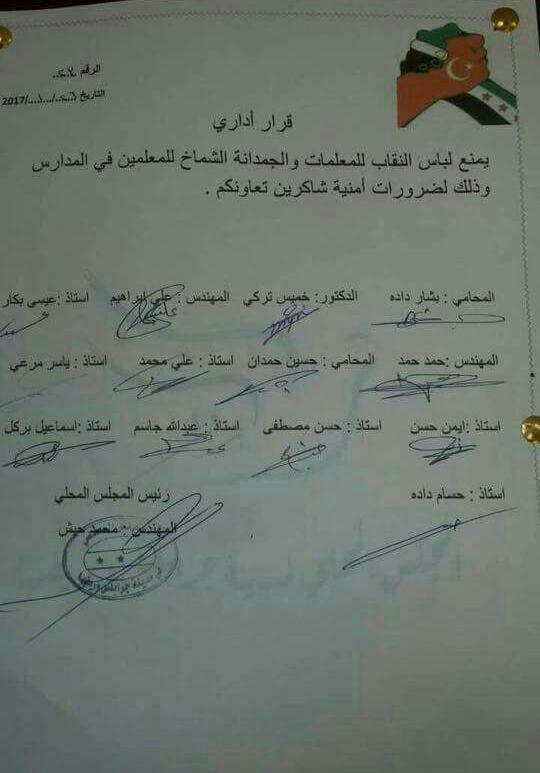 الرقم
التاريخ /2017
قرار أداري
يمنع لباس النقاب للمعلمات والجمدانة الشماخ للمعلمين في المدارس
وذلك لضرورات أمنية شاكرين تعاونكم .
المحامي : بشار داده الدكتور: خميس تركي المهندس : علي ابراهيم استاذ :عيسى بكار
المهندس :حمد حمد المحامي : حسين حمدان استاذ : علي محمد استاذ : ياسر مرعي
استاذ :ايمن حسن استاذ : حسن مصطفى استاذ : عبدالله جاسم استاذ :اسماعيل بركل
استاذ : حسام داده رئيس المجلس المحلي
المهندس : محمد حبش